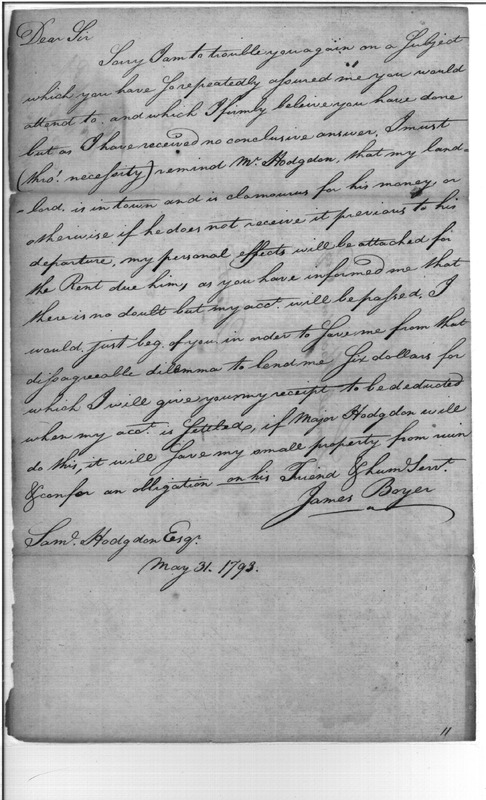 Dear Sir
Sorry I am to trouble you again on a Subject
which you have so repeatedly assured me you would
attend to. and which I firmly beleive you have done
but as I have received no conclusive answer, I must
(thro'. necessity) remind Mr. Hodgdon, that my land-
-lord. is in town and is clamourus for his money, or
otherwise if he does not receive it previous to his
departure, my personal effects will be attached for
the Rent due him, as you have informed me that
there is no doubt but my acct. will be passed. I
would just beg. of you in order to save me from that
dissagreeable dilemma to lend me Six dollars for
which I will give you my receipt to be deducted
when my acct. is settled, if Major Hodgdon will
do this, it will save my small property from ruin
& confer an obligation on his Friend & humd. Servt.
James Boyer
Saml. Hodgdon Esqr.
May 31. 1793.
11